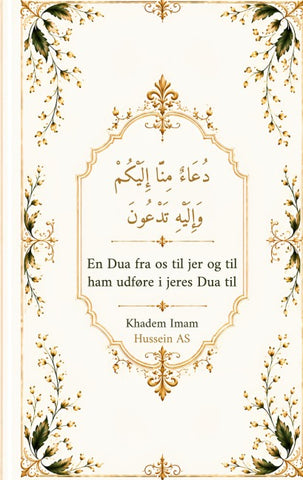 دُعَاءٌ مِنَّا إِلَيْكُمْ
وَإِلَيْهِ تَدْعُونَ
En Dua fra os til jer og til
ham udføre i jeres Dua til
Khadem Imam
Hussein AS